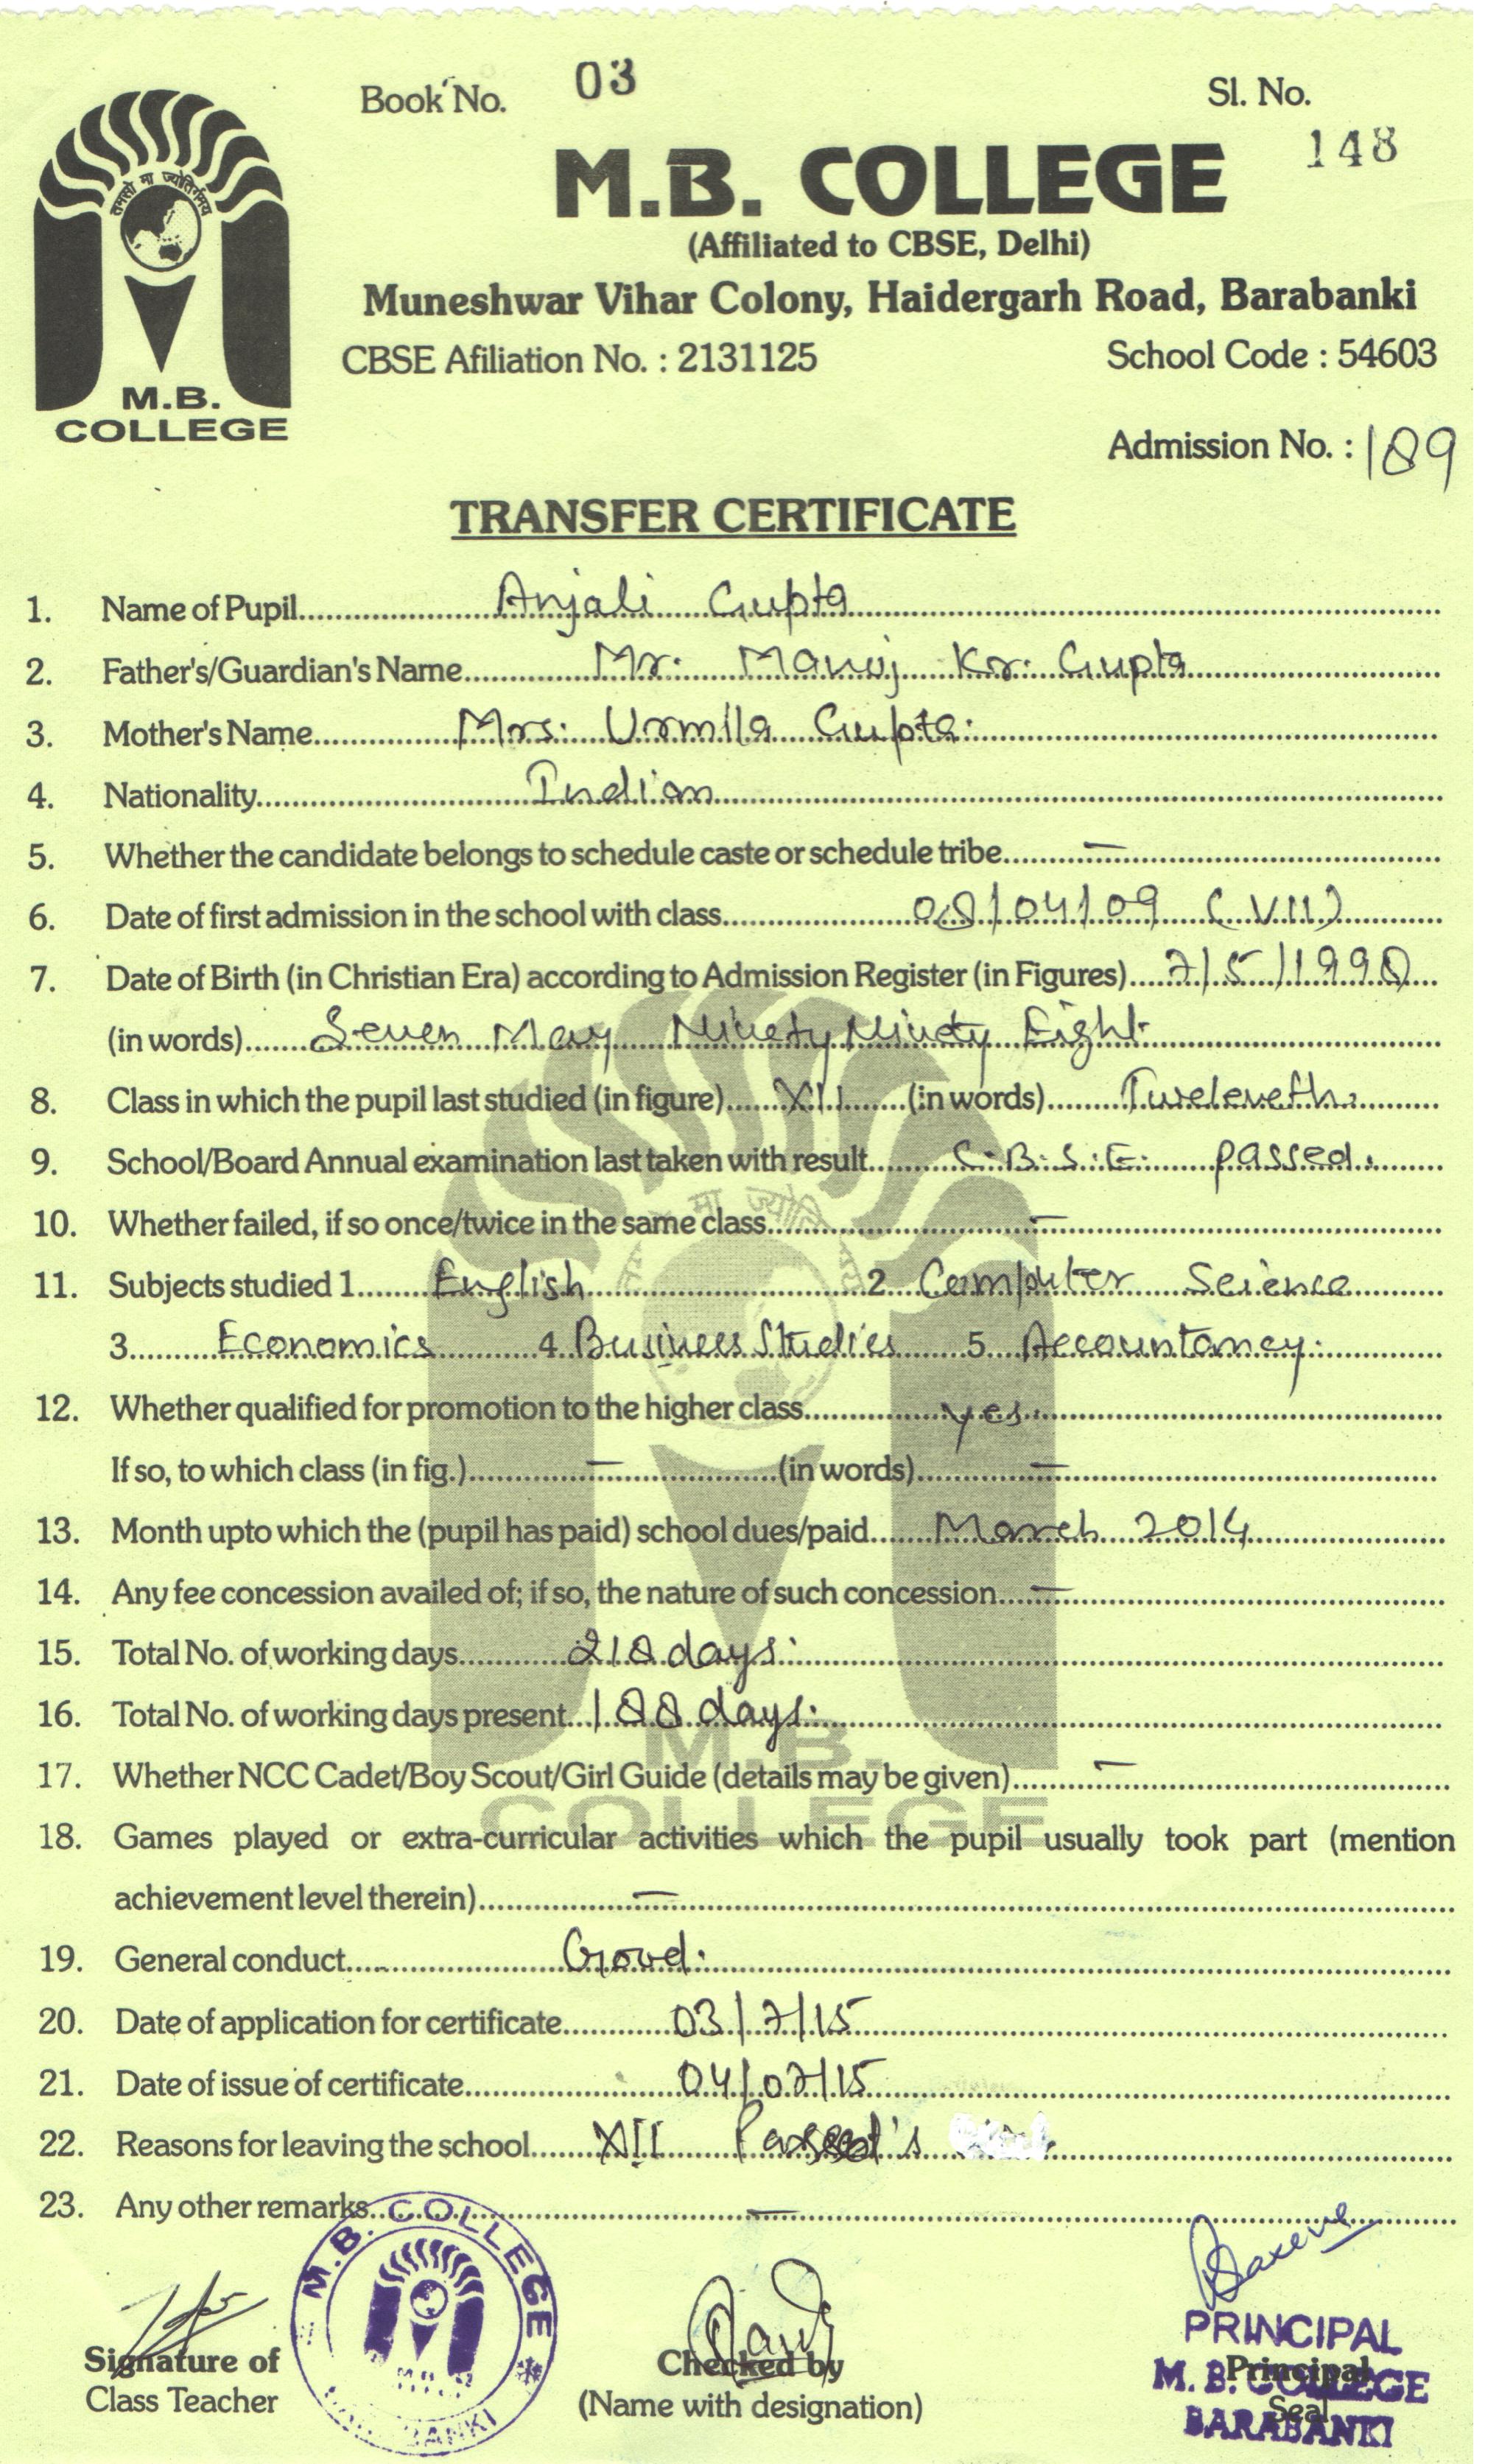 Book No. 03 Sl. No. 148
तमसो मा ज्योतिर्गमय
M.B. COLLEGE
M.B. COLLEGE
(Affiliated to CBSE, Delhi)
Muneshwar Vihar Colony, Haidergarh Road, Barabanki
CBSE Afiliation No. : 2131125 School Code : 54603
Admission No. : 189
TRANSFER CERTIFICATE
1. Name of Pupil Anjali Gupta
2. Father's/Guardian's Name Mr. Manoj Kr. Gupta
3. Mother's Name Mrs. Urmila Gupta.
4. Nationality Indian
5. Whether the candidate belongs to schedule caste or schedule tribe —
6. Date of first admission in the school with class 08/04/09 (VII)
7. Date of Birth (in Christian Era) according to Admission Register (in Figures) 7/5/1998
(in words) Seven May Ninety Ninety Eight.
8. Class in which the pupil last studied (in figure) XII (in words) Tweleveth.
9. School/Board Annual examination last taken with result C.B.S.E. passed.
10. Whether failed, if so once/twice in the same class —
11. Subjects studied 1. English 2. Computer Science
3. Economics 4. Business Studies 5. Accountancy.
12. Whether qualified for promotion to the higher class yes.
If so, to which class (in fig.) — (in words) —
13. Month upto which the (pupil has paid) school dues/paid March 2014
14. Any fee concession availed of; if so, the nature of such concession —
15. Total No. of working days 218 days.
16. Total No. of working days present 188 days.
17. Whether NCC Cadet/Boy Scout/Girl Guide (details may be given) —
18. Games played or extra-curricular activities which the pupil usually took part (mention
achievement level therein) —
19. General conduct Good.
20. Date of application for certificate 03/7/15
21. Date of issue of certificate 04/07/15
22. Reasons for leaving the school XII
23. Any other remarks —
M.B. COLLEGE
Signature of
Class Teacher
Checked by
(Name with designation)
PRINCIPAL
M. B. COLLEGE
BARABANKI
Principal
Seal